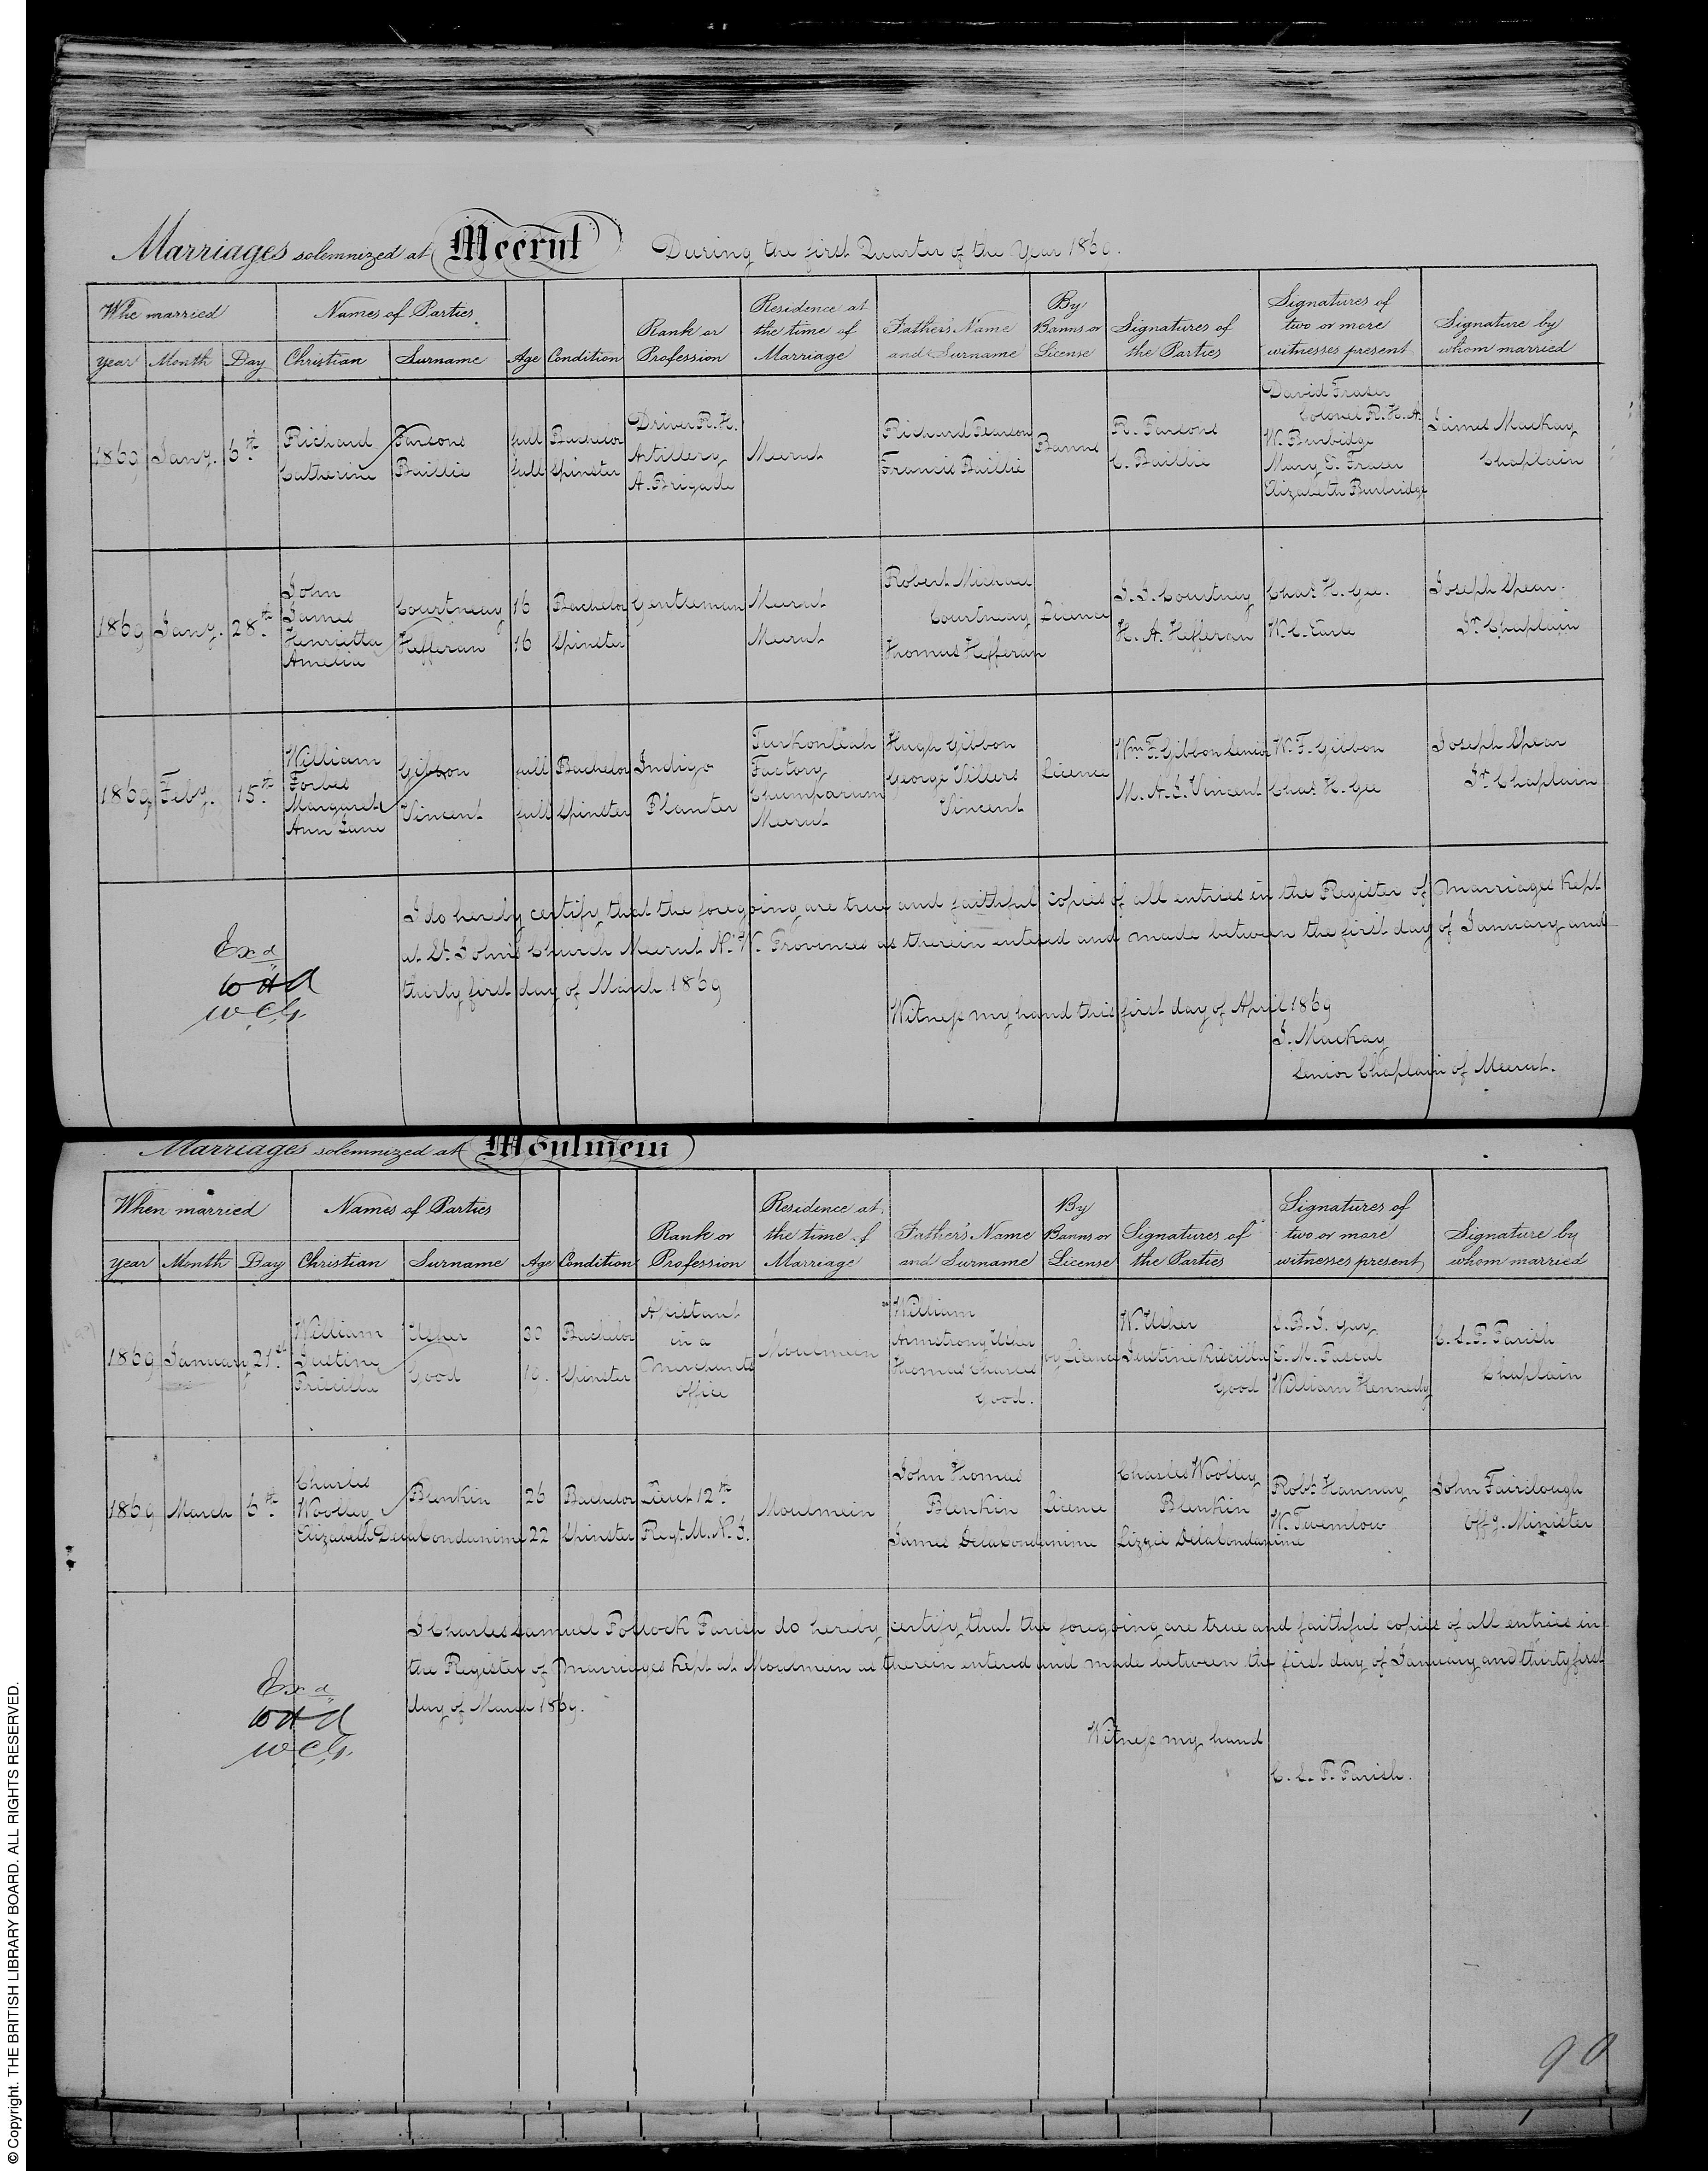 Marriages solemnized at Meerut During the first Quarter of the Year 1869.
Whe married
Names of Parties
Age
Condition
Rank or Profession
Residence at the time of Marriage
Father's Name and Surname
By Banns or License
Signatures of the Parties
Signatures of two or more witnesses present
Signature by whom married
Year Month Day Christian Surname
1869 Jany. 6th
Richard Parsons full Bachelor
Catherine Baillie full Spinster
Driver R. H.
Artillery
A. Brigade
Meerut
Richard Pearson
Francis Baillie
Banns
R. Parsons
C. Baillie
David Fraser
Colonel R. H. A.
W. Burbidge
Mary E. Fraser
Elizabeth Burbridge
James Mackay
Chaplain
1869 Jany. 28th
John
James
Henrietta
Amelia
Courtneay 16 Bachelor Gentleman Meerut
Hefferan 16 Spinster Meerut
Robert Michael
Courtneay
Thomas Hefferan
Licence
J. J. Courtney
H. A. Hefferan
Chas. H. Gee.
W. C. Earle
Joseph Spear.
Jr. Chaplain
1869 Feby. 15th
William
Forbes
Margaret
Ann Jane
Gibbon full Bachelor
Vincent full Spinster
Indigo
Planter
Turkouleah
Factory
Chumparum
Meerut
Hugh Gibbon
George Villers
Vincent
Licence
Wm. F. Gibbon Senior
M. A. J. Vincent
W. F. Gibbon
Chas. H. Gee
Joseph Spear
Jr. Chaplain
I do hereby certify that the foregoing are true and faithful copies of all entries in the Register of Marriages kept
at St. John's Church Meerut N. W. Provinces as therein entered and made between the first day of January and
thirty first day of March 1869
Witness my hand this first day of April 1869
J. Mackay
Senior Chaplain of Meerut.
Exd
W C G.
Marriages solemnized at Moulmein
When married
Names of Parties
Age
Condition
Rank or Profession
Residence at the time of Marriage
Father's Name and Surname
By Banns or License
Signatures of the Parties
Signatures of two or more witnesses present
Signature by whom married
Year Month Day Christian Surname
1869 January 21st
William
Justine
Priscilla
Usher 30 Bachelor
Good 19. Spinster
Assistant
in a
Merchants
office
Moulmein
William
Armstrong Usher
Thomas Charles
Good.
by Licence
W. Usher
Justine Priscilla
Good
S. B. J. Guy
E. M. Pascal
William Kennedy
C. S. P. Parish
Chaplain
1869 March 6th
Charles
Woolley
Elizabeth Delacondamine
Blenkin 26 Bachelor
22 Spinster
Lieut 12th
Regt. M. N. I.
Moulmein
John Thomas
Blenkin
James Delacondamine
Licence
Charles Woolley
Blenkin
Lizzie Delacondamine
Robt. Hannay
W. Twemlow
John Fairclough
Offg. Minister
I Charles Samuel Pollock Parish do hereby certify that the foregoing are true and faithful copies of all entries in
the Register of Marriages kept at Moulmein as therein entered and made between the first day of January and thirty first
day of March 1869.
Witness my hand
C. S. P. Parish.
Exd
W C G.
90
© Copyright. THE BRITISH LIBRARY BOARD. ALL RIGHTS RESERVED.